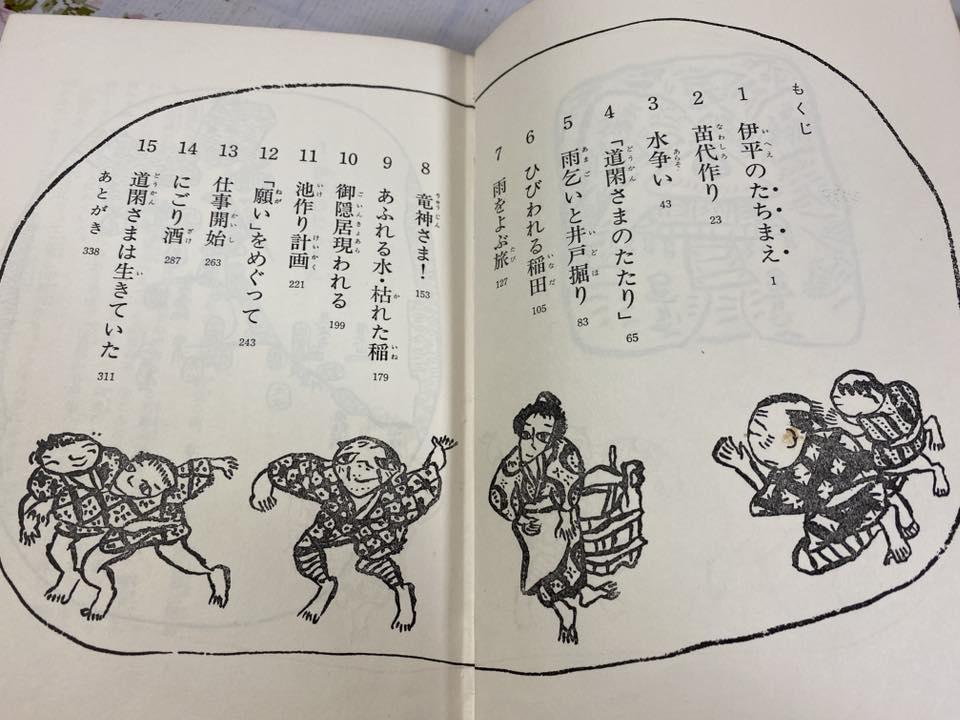 もくじ
1 伊平のたちまえ 1
2 苗代作り 23
3 水争い 43
4 「道閑さまのたたり」 65
5 雨乞いと井戸掘り 83
6 ひびわれる稲田 105
7 雨をよぶ旅 127
8 竜神さま！ 153
9 あふれる水・枯れた稲 179
10 御隠居現われる 199
11 池作り計画 221
12 「願い」をめぐって 243
13 仕事開始 263
14 にごり酒 287
15 道閑さまは生きていた 311
あとがき 338